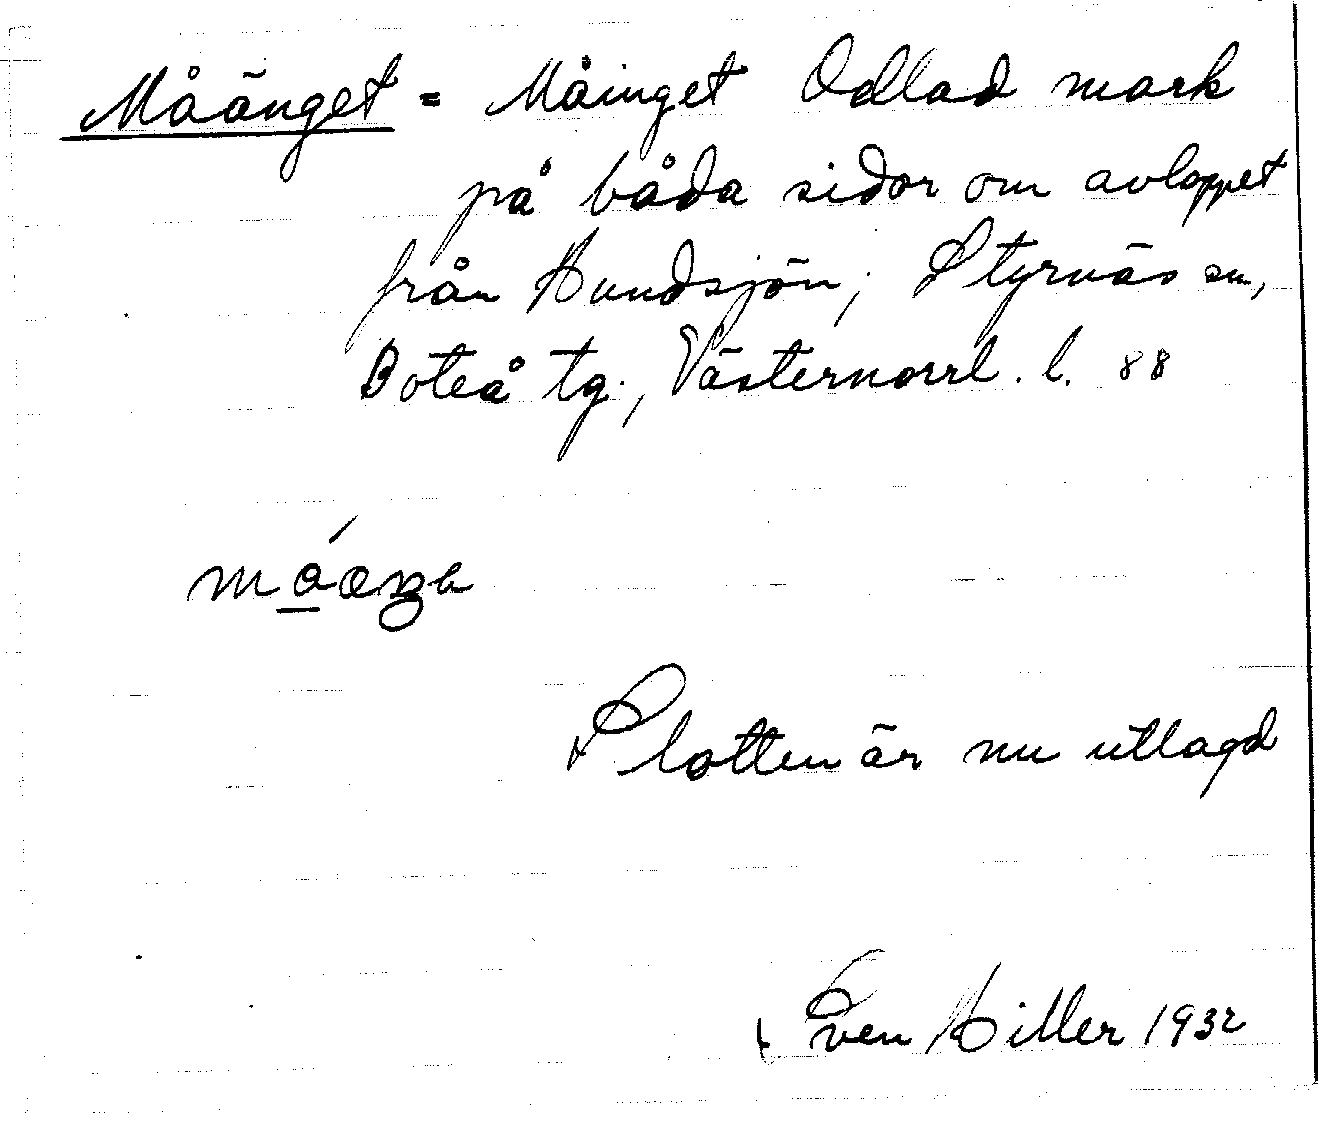 Måänget = Måinget Odlad mark
på båda sidor om avloppet
från Hundsjön; Styrnäs sn,
Boteå tg., Västernorrl. l. 88
Slotten är nu utlagd
Sven Hiller 1932